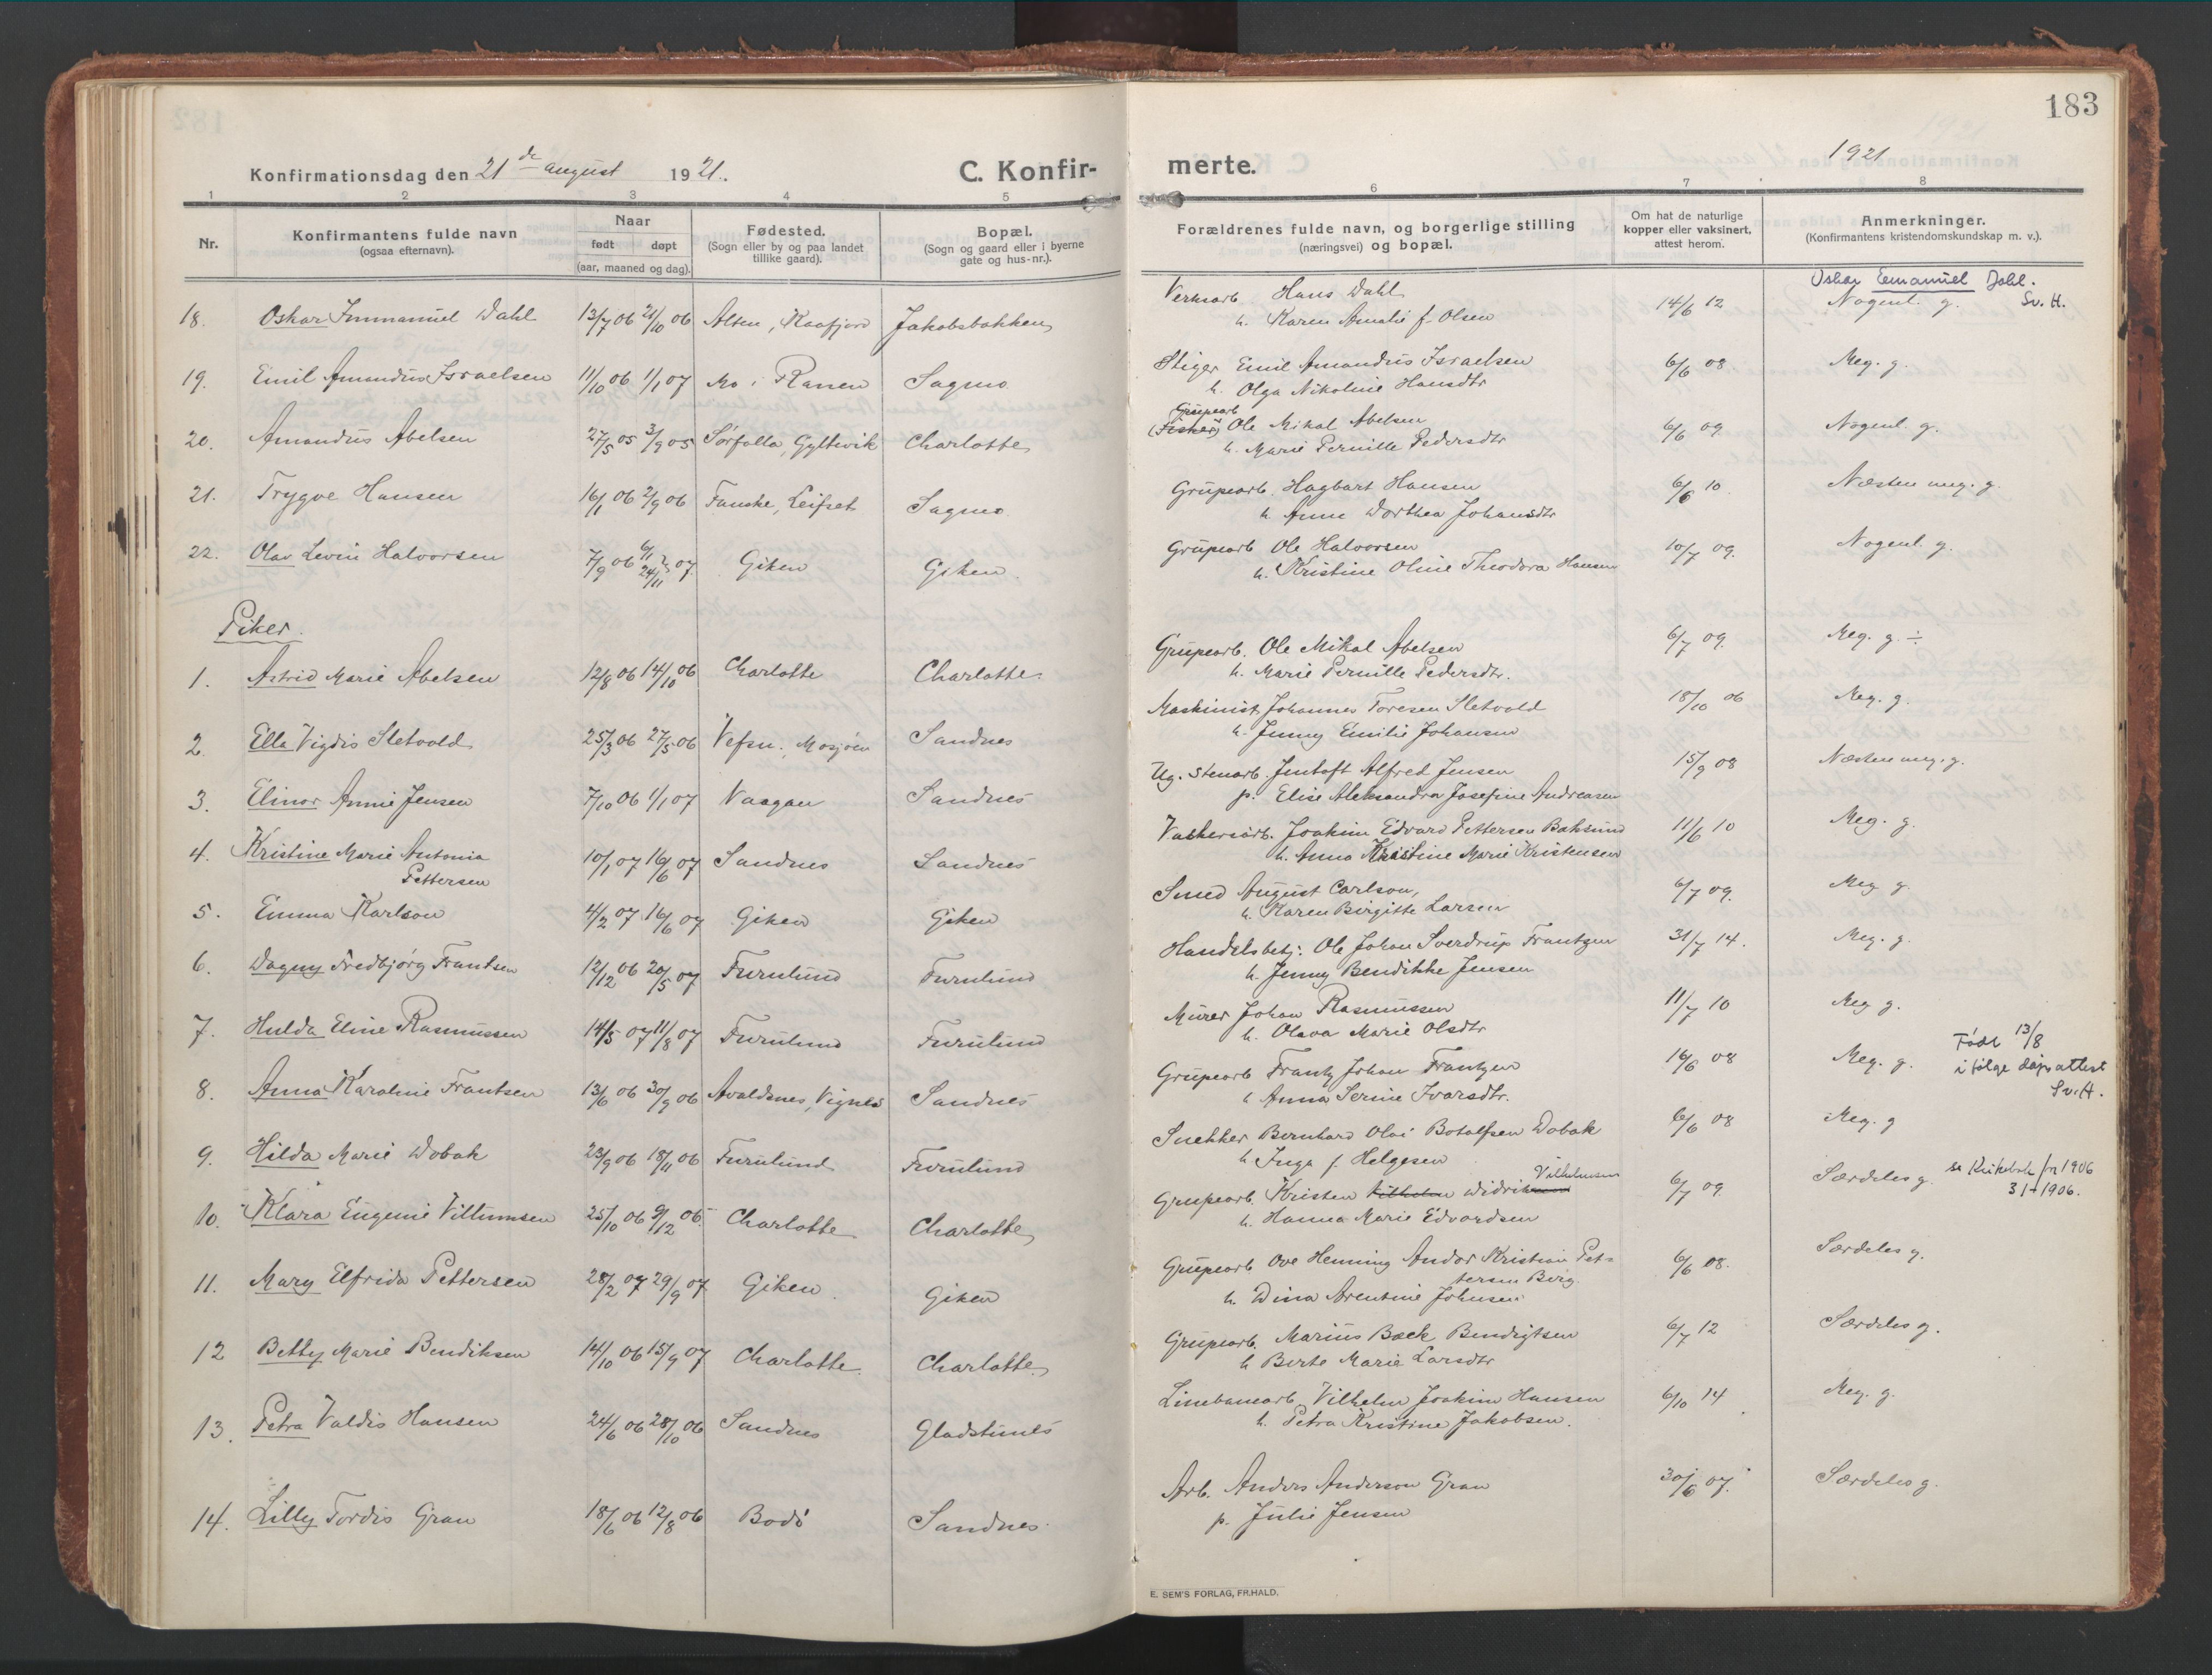 183
Konfirmationsdag den 21de august 1921.
C. Konfir-
merte.
1921
1 2 3 4 5 6 7 8
Nr.
Konfirmantens fulde navn
(ogsaa efternavn).
Naar
født døpt
(aar, maaned og dag).
Fødested.
(Sogn eller by og paa landet
tillike gaard).
Bopæl.
(Sogn og gaard eller i byerne
gate og hus-nr.).
Forældrenes fulde navn, og borgerlige stilling
(næringsvei) og bopæl.
Om hat de naturlige
kopper eller vaksinert,
attest herom.
Anmerkninger.
(Konfirmantens kristendomskundskap m. v.).
Oskar Emanuel Dahl.
Sv. H.
18. Oskar Immanuel Dahl 13/7 06 21/10 06 Alten, Kaafjord Jakobsbakken Verksarb. Hans Dahl 14/6 12 Nogenl. g.
h. Karen Amalie f. Olsen
19. Emil Amandus Israelsen 11/10 06 1/1 07 Mo i Ranen Sagmo Stiger Emil Amandus Israelsen 6/6 08 Meg. g.
h. Olga Nikoline Hansdtr
Grupearb
20. Amandus Abelsen 27/5 05 3/9 05 Sørfolla, Gyltvik Charlotte (Fisker) Ole Mikal Abelsen 6/6 09 Nogenl. g.
h. Marie Pernille Pedersdtr
21. Trygve Hansen 16/1 06 2/9 06 Fauske, Leifset Sagmo Grupearb. Hagbart Hansen 6/6 10. Næsten meg. g.
h. Anne Dorthea Johansdtr
22. Olav Levin Halvorsen 7/9 06 6/1 24/11 07. Giken Giken. Grupearb Ole Halvorsen 10/7 09. Nogenl. g.
h. Kristine Oline Theodora Hansen
Piker.
1. Astrid Marie Abelsen 12/8 06 14/10 06 Charlotte Charlotte. Grupearb. Ole Mikal Abelsen 6/7 09. Meg. g. ÷
h. Marie Pernille Pedersdtr.
2. Ella Vigdis Sletvold 25/3 06 27/5 06 Vefsn, Mosjøen Sandnes Maskinist Johannes Toresen Sletvold 18/10 06 Meg. g.
h. Jenny Emilie Johansen
3. Elinor Annie Jensen 7/10 06 1/1 07 Vaagan Sandnes Ug. Stenarb. Jentoft Alfred Jensen 15/9 08 Næsten meg. g.
p. Elise Aleksandra Josefine Andreasen
4. Kristine Marie Antonia
Pettersen 10/1 07 16/6 07 Sandnes Sandnes Vaskeriarb. Joakim Edvard Pettersen Baksund 11/6 10 Meg. g.
h. Anna Kristine Marie Kristensen
5. Emma Karlson 4/2 07 16/6 07 Giken Giken Smed August Carlson, 6/7 09. Meg g.
h. Karen Birgitte Larsen
6. Dagny Fredbjørg Frantsen 12/12 06 20/5 07 Furulund Furulund Handelsbetj. Ole Johan Sverdrup Frantzen 31/7 14. Meg. g.
h. Jenny Bendikke Jensen
7. Hulda Eline Rasmussen 14/5 07 11/8 07 Furulund Furulund Murer Johan Rasmussen 11/7 10 Meg g.
h. Olava Marie Olsdtr
8. Anna Karoline Frantsen 13/6 06 30/9 06 Avaldsnes, Vignes Sandnes Grupearb Frantz Johan Frantzen 16/6 08 Meg. g. Født 13/8
i følge dåpsattest
Sv. H.
h Anna Serine Ivarsdtr.
9. Hilda Marie Dobak 23/9 06 18/11 06 Furulund Furulund Snekker Bernhard Olai Botolfsen Dobak 6/6 08 Meg. g
h Inga f. Helgesen
Vilhelmsen
10. Klara Eugenie Viltumsen 25/10 06 9/12 06 Charlotte Charlotte Grupearb. Kristen Vilhelm Didriksen 6/7 09. Særdeles g. se Kirkebok for 1906
31-1906.
h. Hanna Marie Edvardsen
11. Mary Elfrida Pettersen 28/2 07 29/9 07. Giken Giken Grupearb Ove Henning Andor Kristian Pet-
tersen Berg. 6/6 08. Særdeles g.
h. Dina Arentine Johnsen
12 Betty Marie Bendiksen 14/10 06 15/9 07 Charlotte Charlotte Grupearb. Marius Bæck Bendigtsen 6/7 12 Særdeles g.
h Berte Marie Larsdtr
13. Petra Valdis Hansen 24/6 06 28/10 06 Sandnes Gladstunes Linebanearb. Vilhelm Joakim Hansen 6/10 14 Meg. g.
h. Petra Kristine Jakobsen.
14. Lilly Tordis Gran 18/6 06 12/8 06 Bodø Sandnes. Arb. Anders Anderson Gran 30/6 07. Særdeles g.
p. Julie Jensen
E. SEM'S FORLAG, FR.HALD.